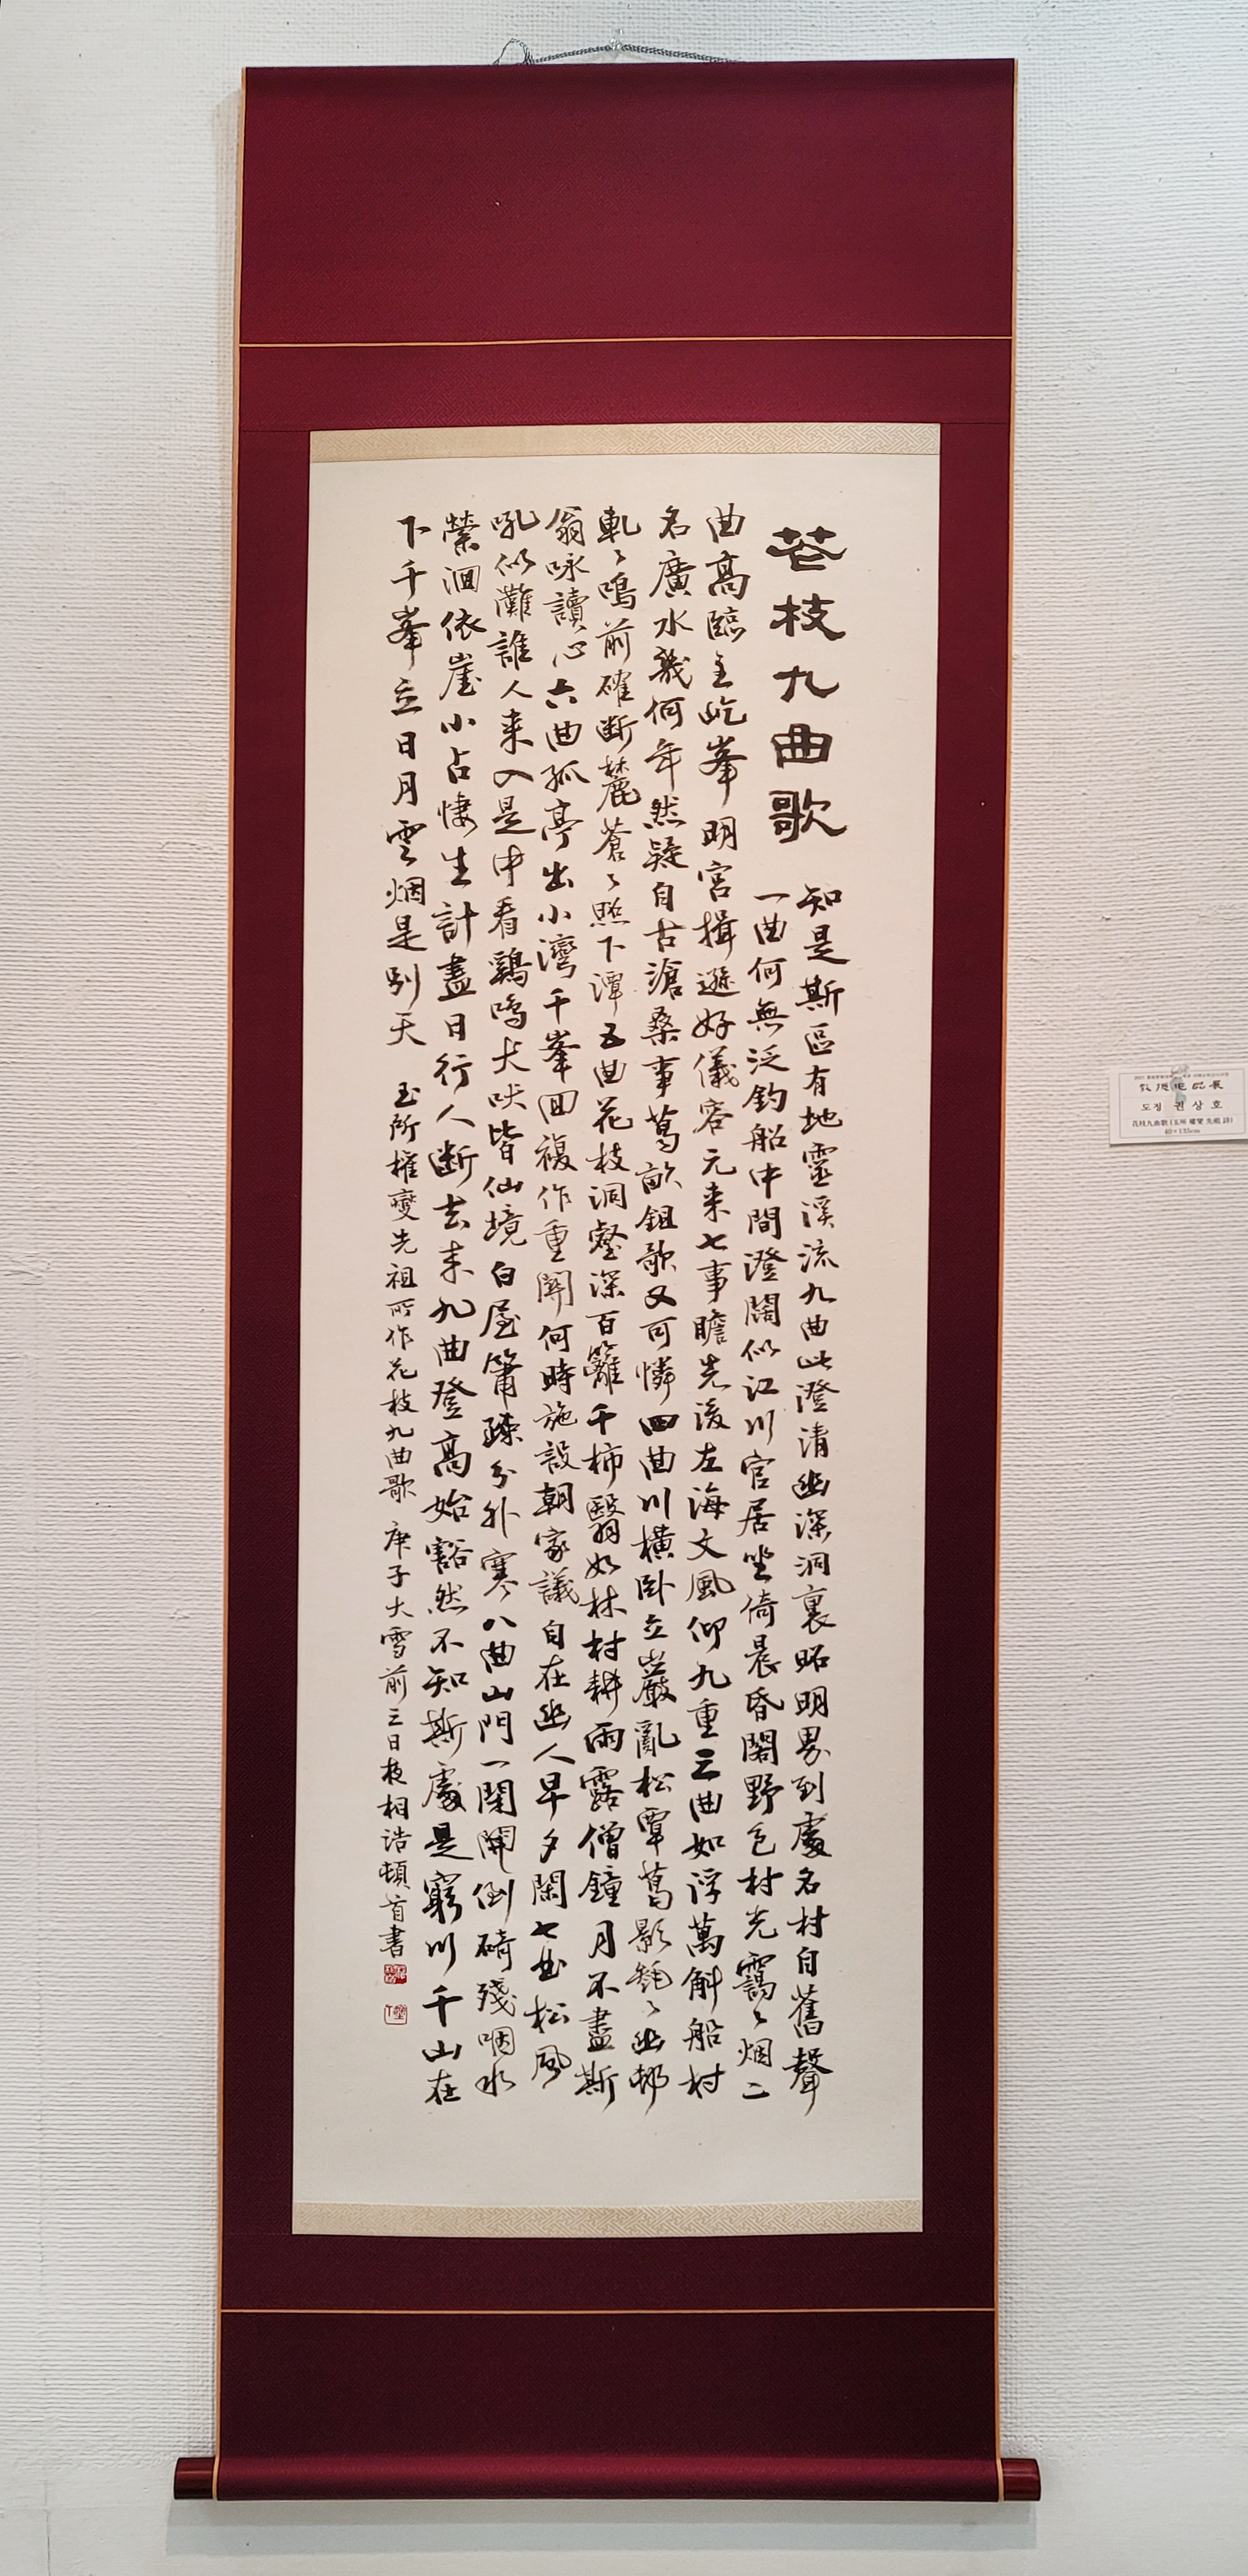 花枝九曲歌
知是斯區有地靈溪流九曲此澄清幽深洞裏昭明界到處名村自舊聲
一曲何無泛釣船中間澄闊似江川官居坐倚晨昏闊野色村光靄〻烟二
曲高臨主屹峯明宮揖遜好儀容元来七事瞻先後左海文風仰九重三曲如浮萬斛船村
名廣水幾何年然疑自古滄桑事葛畝鉏歌又可憐四曲川橫卧立巖亂松覃葛影毿〻幽邨
軋〻鳴前確斷麓蒼〻照下潭五曲花枝洞壑深百籬千柿翳如林村耕雨露僧鐘月不盡斯
翁咏讀心六曲孤亭出小灣千峯回複作重關何時施設朝家議自在幽人早夕閑七曲松風
吼似灘誰人来入是中看鷄鳴犬吠皆仙境白屋簫疎分外寒八曲山門一閉開倒碕殘咽水
縈洄依崖小占悽生計盡日行人断去来九曲登高始豁然不知斯處是窮川千山在
下千峯立日月雲烟是別天 玉所權燮先祖所作花枝九曲歌 庚子大雪前三日枝相浩頓首書
도정 권상호
花枝九曲歌 (玉所 權燮 先祖 詩)
40×135cm